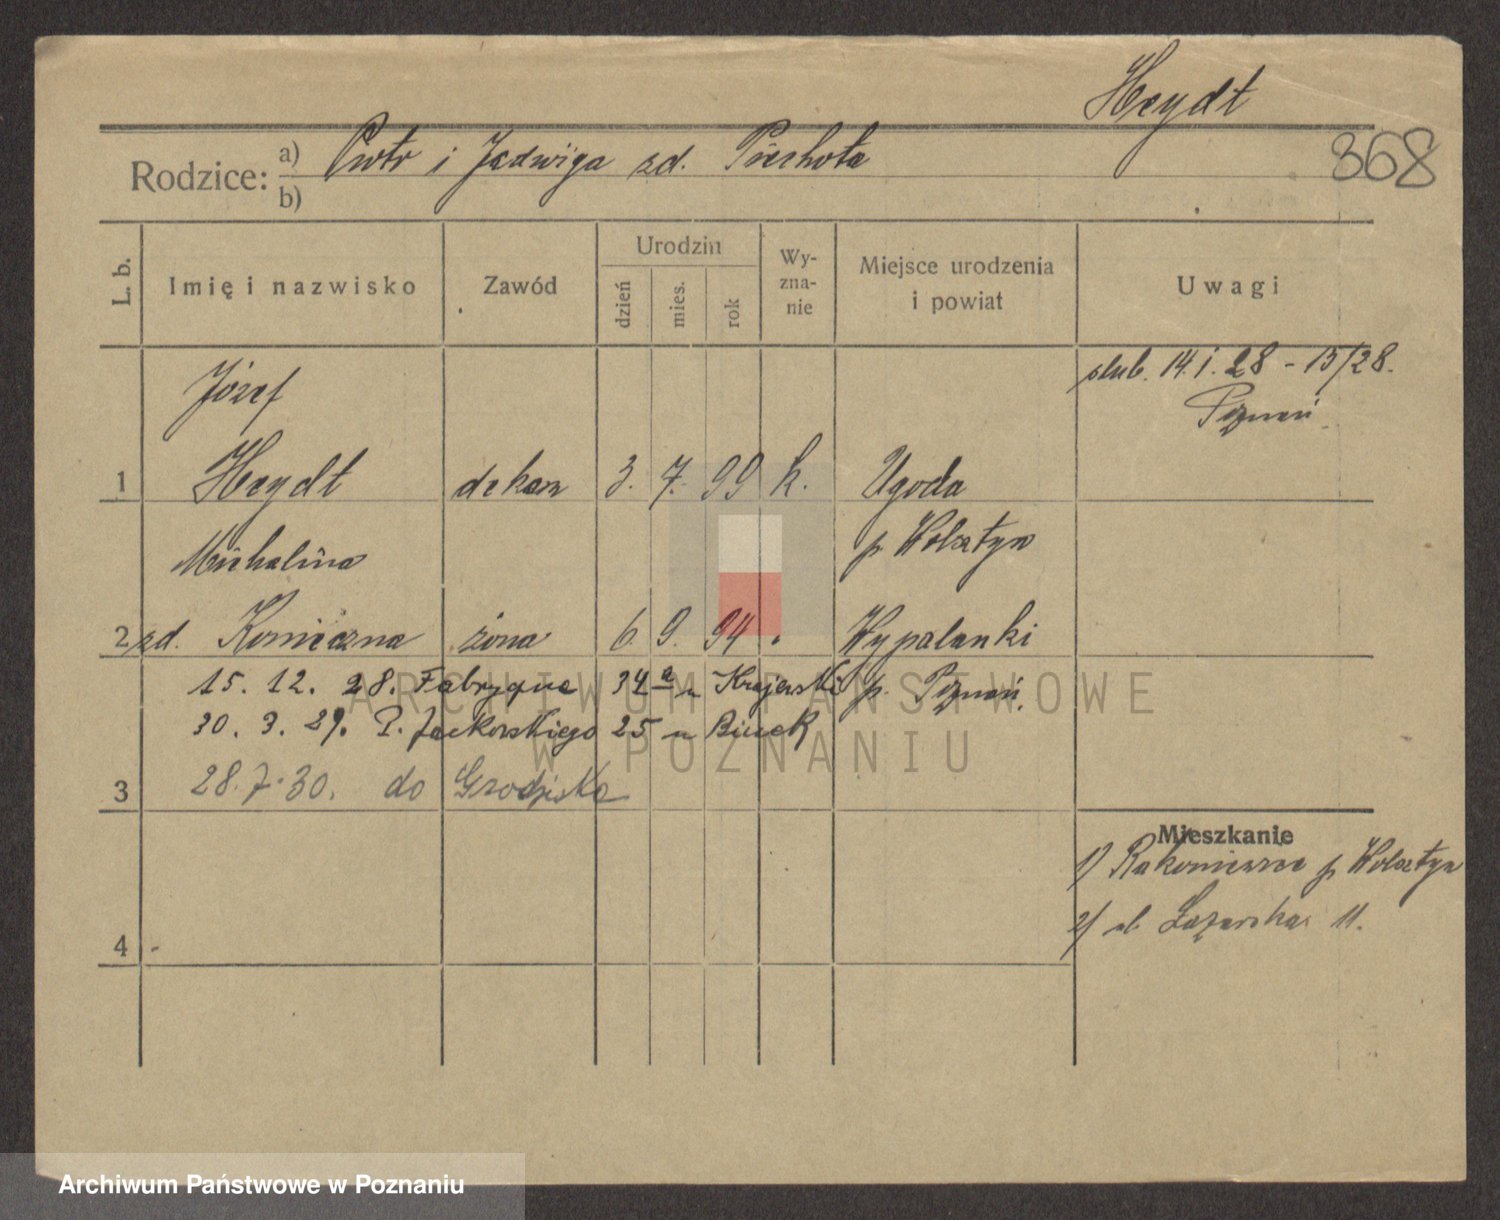 Heydt
368
Rodzice: a) Piotr i Jadwiga zd. Piechota
b)
L. b.
Imię i nazwisko
Zawód
Urodzin
dzień
mies.
rok
Wy-
zna-
nie
Miejsce urodzenia
i powiat
Uwagi
Józef
ślub. 14.1.28 - 15/28.
Poznań
1 Heydt dekarz 3. 7. 99 k. Ugoda
p Wolsztyn
Michalina
2 zd. Konieczna żona 6. 9. 94 " Wypalanki
p. Poznań
15. 12. 28. Fabryczna 34a u Krajerski
30. 3. 29. P. Jackowskiego 25 u
3 28.7.30. do Grodziska
Mieszkanie
1) Rakoniewice p Wolsztyn
2) ul Łazarska 11.
4
ARCHIWUM PAŃSTWOWE
W POZNANIU
Archiwum Państwowe w Poznaniu